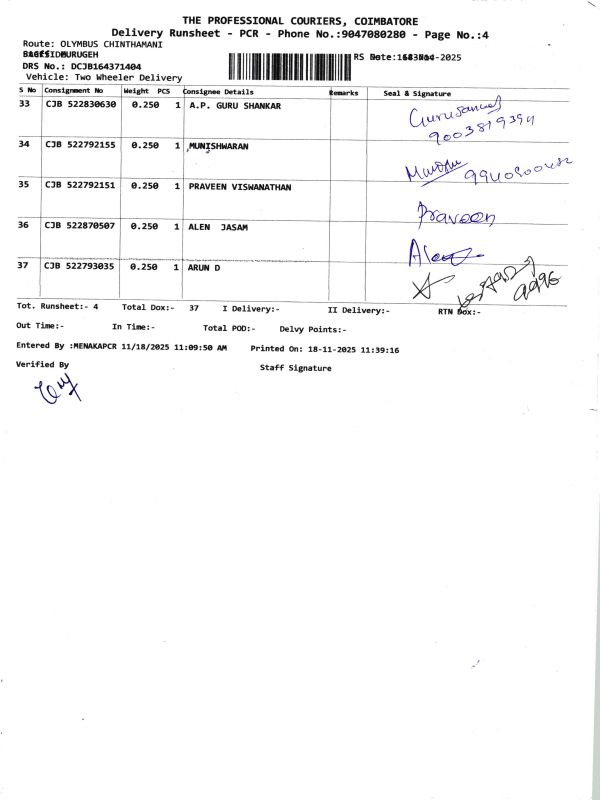 THE PROFESSIONAL COURIERS, COIMBATORE
Delivery Runsheet - PCR - Phone No.:9047080280 - Page No.:4
Route: OLYMBUS CHINTHAMANI
DRS No.: DCJB164371404
Vehicle: Two Wheeler Delivery
S No Consignment No Weight PCS Consignee Details Remarks Seal & Signature
33 CJB 522830630 0.250 1 A.P. GURU SHANKAR
9003819394
34 CJB 522792155 0.250 1 MUNISHWARAN
35 CJB 522792151 0.250 1 PRAVEEN VISWANATHAN Praveen
36 CJB 522870507 0.250 1 ALEN JASAM
37 CJB 522793035 0.250 1 ARUN D
Tot. Runsheet:- 4 Total Dox:- 37 I Delivery:- II Delivery:- RTN Dox:-
Out Time:- In Time:- Total POD:- Delvy Points:-
Entered By :MENAKAPCR 11/18/2025 11:09:50 AM Printed On: 18-11-2025 11:39:16
Verified By Staff Signature